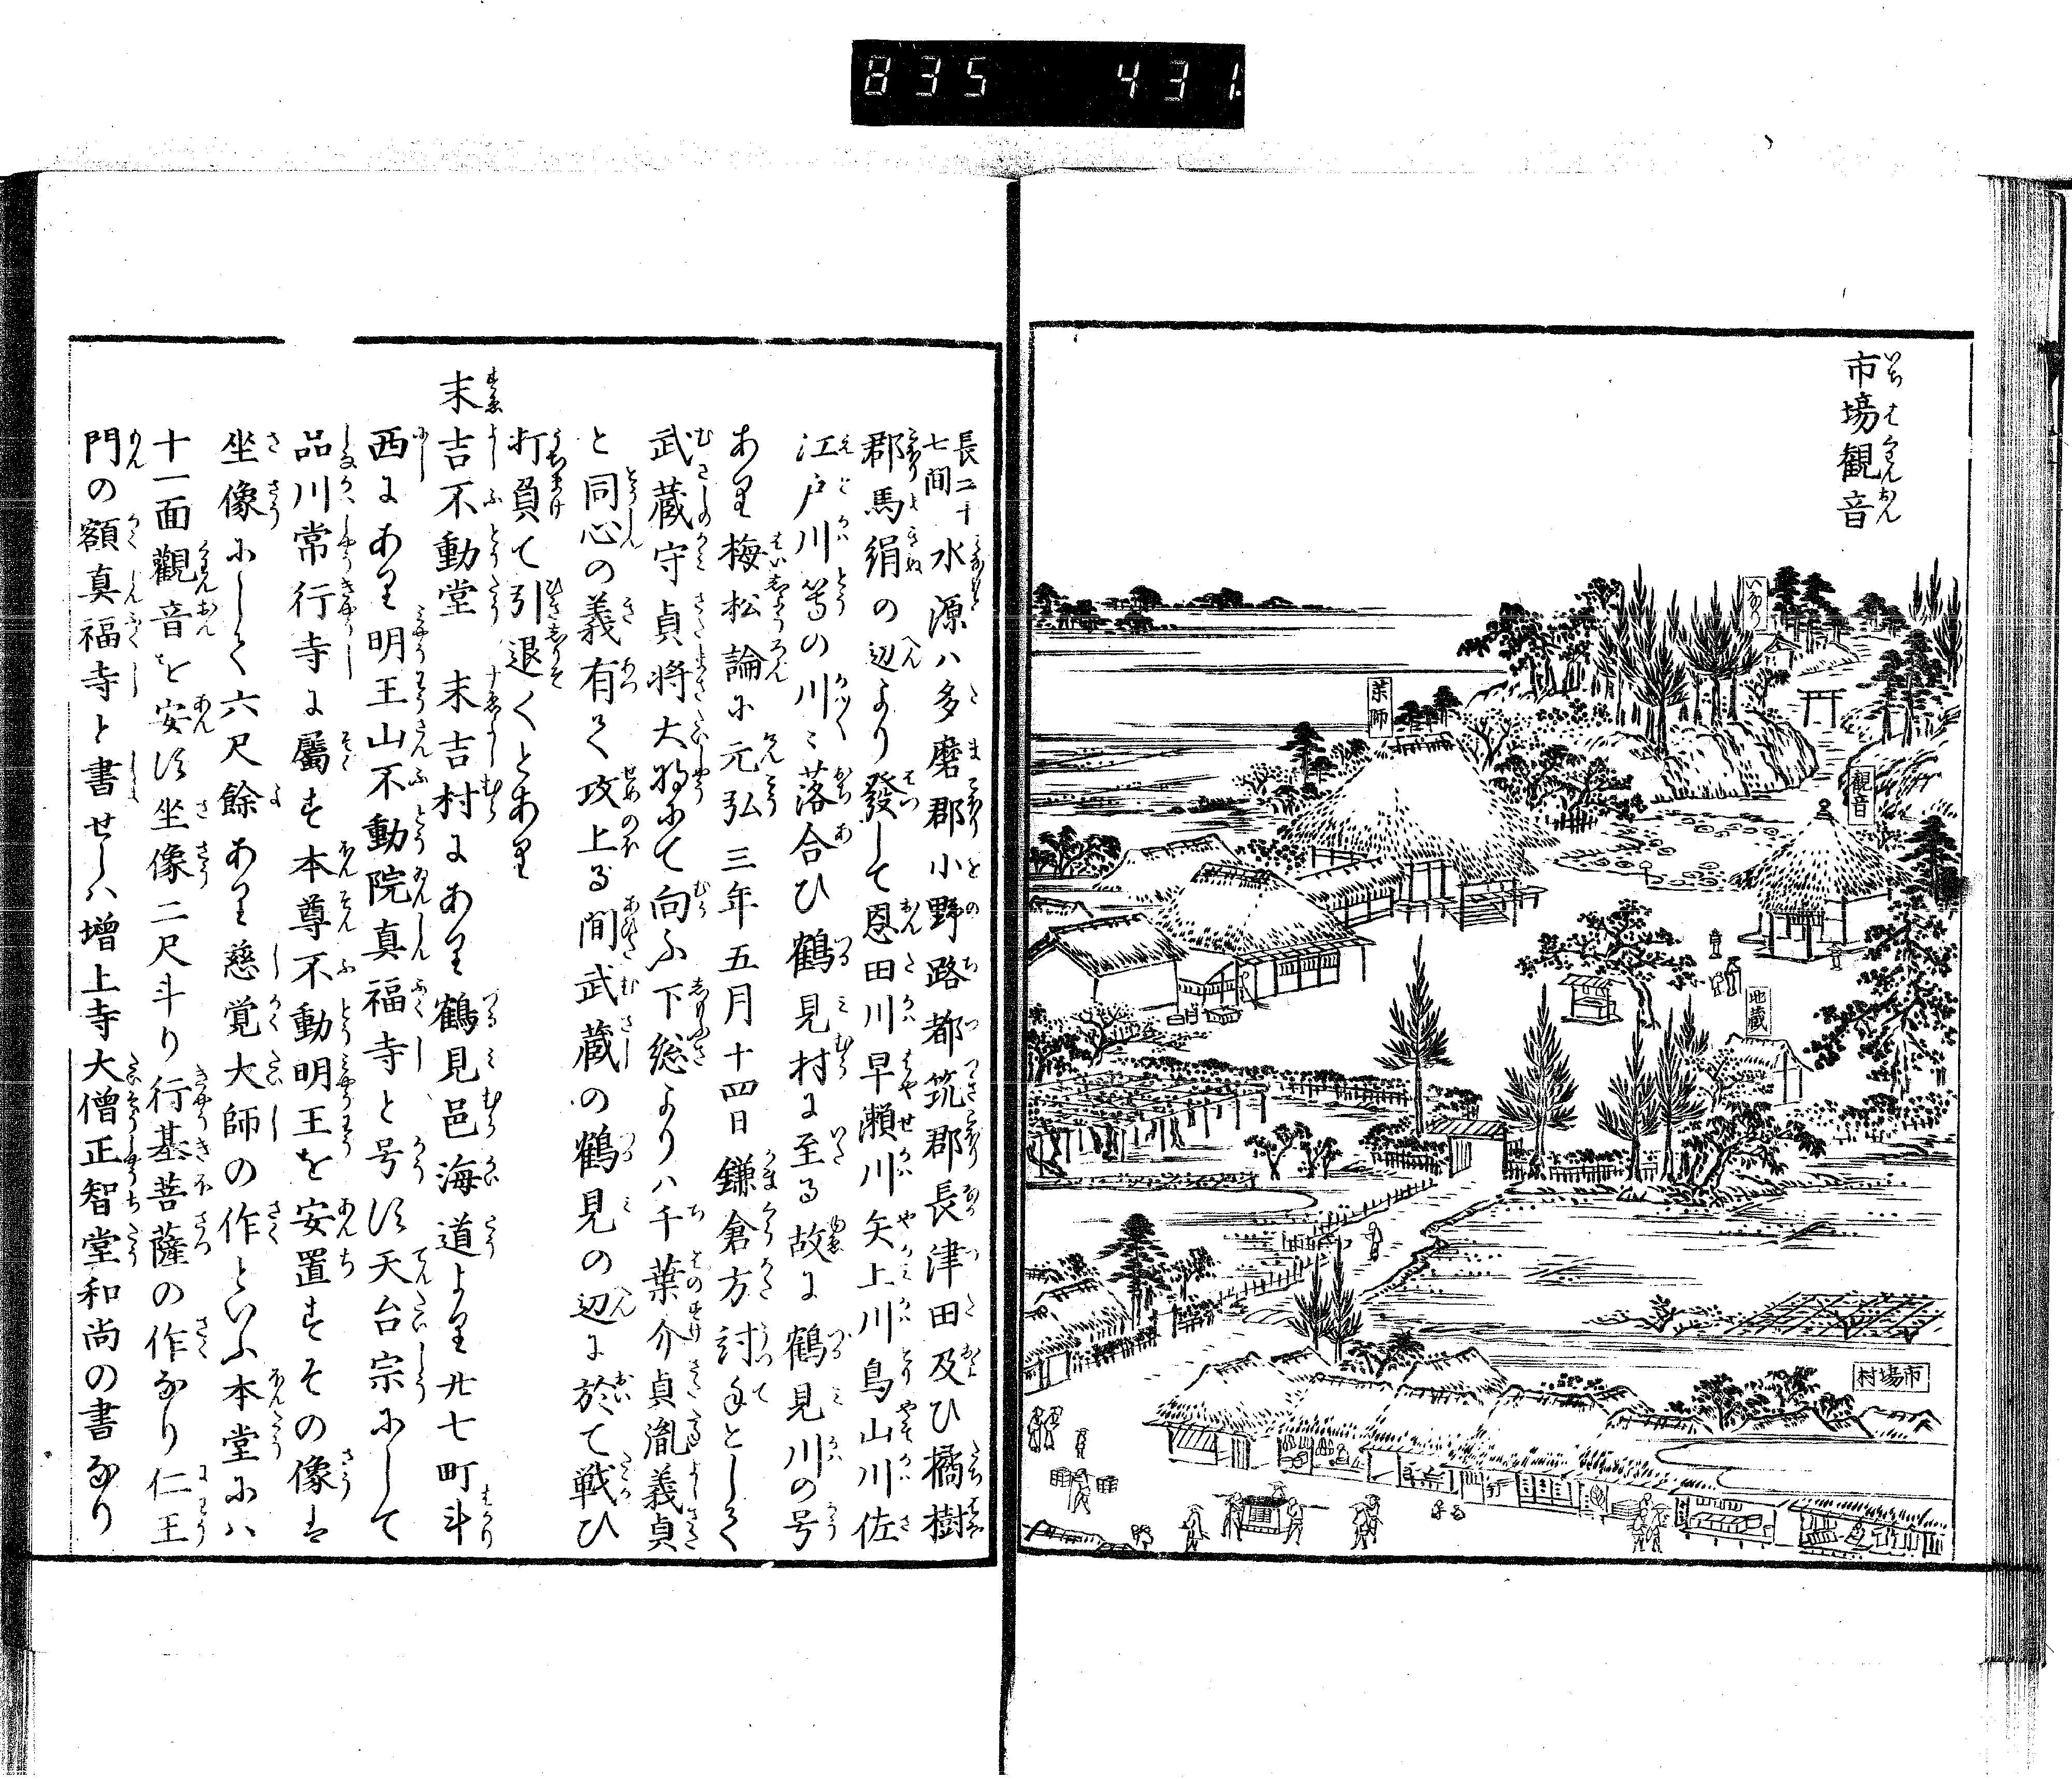 835 431
市場観音
いなり
薬師
観音
地蔵
市場村
長二十七間 水源ハ多磨郡小野路都筑郡長津田及ひ橘樹
郡馬絹の辺より發して恩田川早瀬川矢上川鳥山川佐
江戸川等の川〻落合ひ鶴見村に至る故に鶴見川の号
あり梅松論に元弘三年五月十四日鎌倉方討手として
武蔵守貞将大将にて向ふ下総よりハ千葉介貞胤義貞
と同心の義有て攻上る間武蔵の鶴見の辺に於て戦ひ
打負て引退くとあり
末吉不動堂 末吉村にあり鶴見邑海道より廿七町斗
西にあり明王山不動院真福寺と号す天台宗にして
品川常行寺に屬す本尊不動明王を安置すその像は
坐像にして六尺餘あり慈覚大師の作といふ本堂にハ
十一面觀音を安す坐像二尺斗り行基菩薩の作なり仁王
門の額真福寺と書せしハ増上寺大僧正智堂和尚の書なり